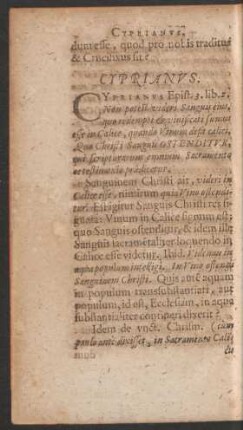 CYPRIANVS.
dum esse, quod pro nobis traditus
& Crucifixus sit?
CYPRIANVS.
CYPRIANVS Epist. 3. lib. 2.
Non potest videri Sanguis ejus,
quo redempti & vivificati sumus
esse in Calice, quando Vinum desit calici,
Quo Christi Sanguis OSTENDITUR,
qui scripturarum omnium Sacramento
ac testimonio prædicatur.
Sanguinem Christi ait, videri in
Calice esse,
Est igitur Sanguis Christi res
Vinum in Calice signum est:
quo Sanguis ostenditur, & idem ille
Sanguis sacramentaliter loquendo in
Calice esse videtur. Ibid. Videmus in
aqua populum intelligi. In Vino ostendi
Sanguinem Christi. Quis ante aquam
in populum transsubstantiati, aut
populum, id est, Ecclesiam, in aqua
substantialiter contineri dixerit?
Idem de vnct. Chrism. (cum
paulo ante dixisset, in Sacramento Cali-